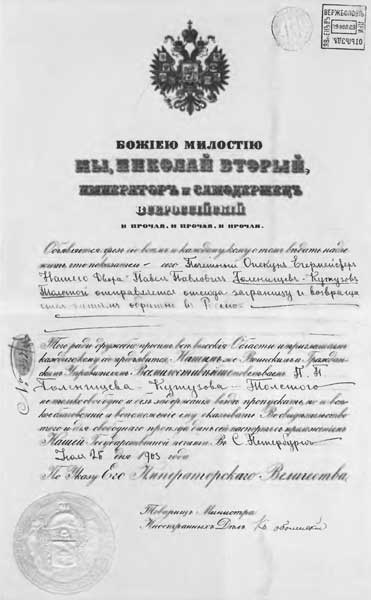 ВЕРЖБОЛОВЪ
БОЖІЕЮ МИЛОСТІЮ
МЫ, НИКОЛАЙ ВТОРЫЙ,
ИМПЕРАТОРЪ и САМОДЕРЖЕЦЪ
ВСЕРОССІЙСКІЙ
И ПРОЧАЯ, И ПРОЧАЯ, И ПРОЧАЯ.
Объявляется чрезъ сіе всѣмъ и каждому кому о томъ вѣдать надле
житъ что показатель сего Почетный Опекунъ Егермейстеръ
Нашего Двора Павелъ Павловичъ Голенищевъ-Кутузовъ
Толстой отправляется отсюда заграницу и возвращ
обратно въ Р
Того ради дружески просимъ всѣ высокія Области и приглашаемъ
каждаго кому сіе предъявится, Нашимъ же Воинскимъ и Граждан
скимъ Управителямъ Всемилостивѣйше повелѣваемъ П. П.
Голенищева-Кутузова-Толстого
не токмо свободно и безъ задержанія вездѣ пропускать но и вся
кое благоволеніе и вспоможеніе ему оказывать Во свидѣтельство
того и для свободнаго проѣзда данъ сей паспортъ съ приложеніемъ
Нашей Государственной печати Въ С. Петербургѣ
Іюля 25 дня 1903 года
По Указу Его Императорскаго Величества,
Товарищъ Министра
Иностранныхъ Дѣлъ Кн. Оболенскій
№